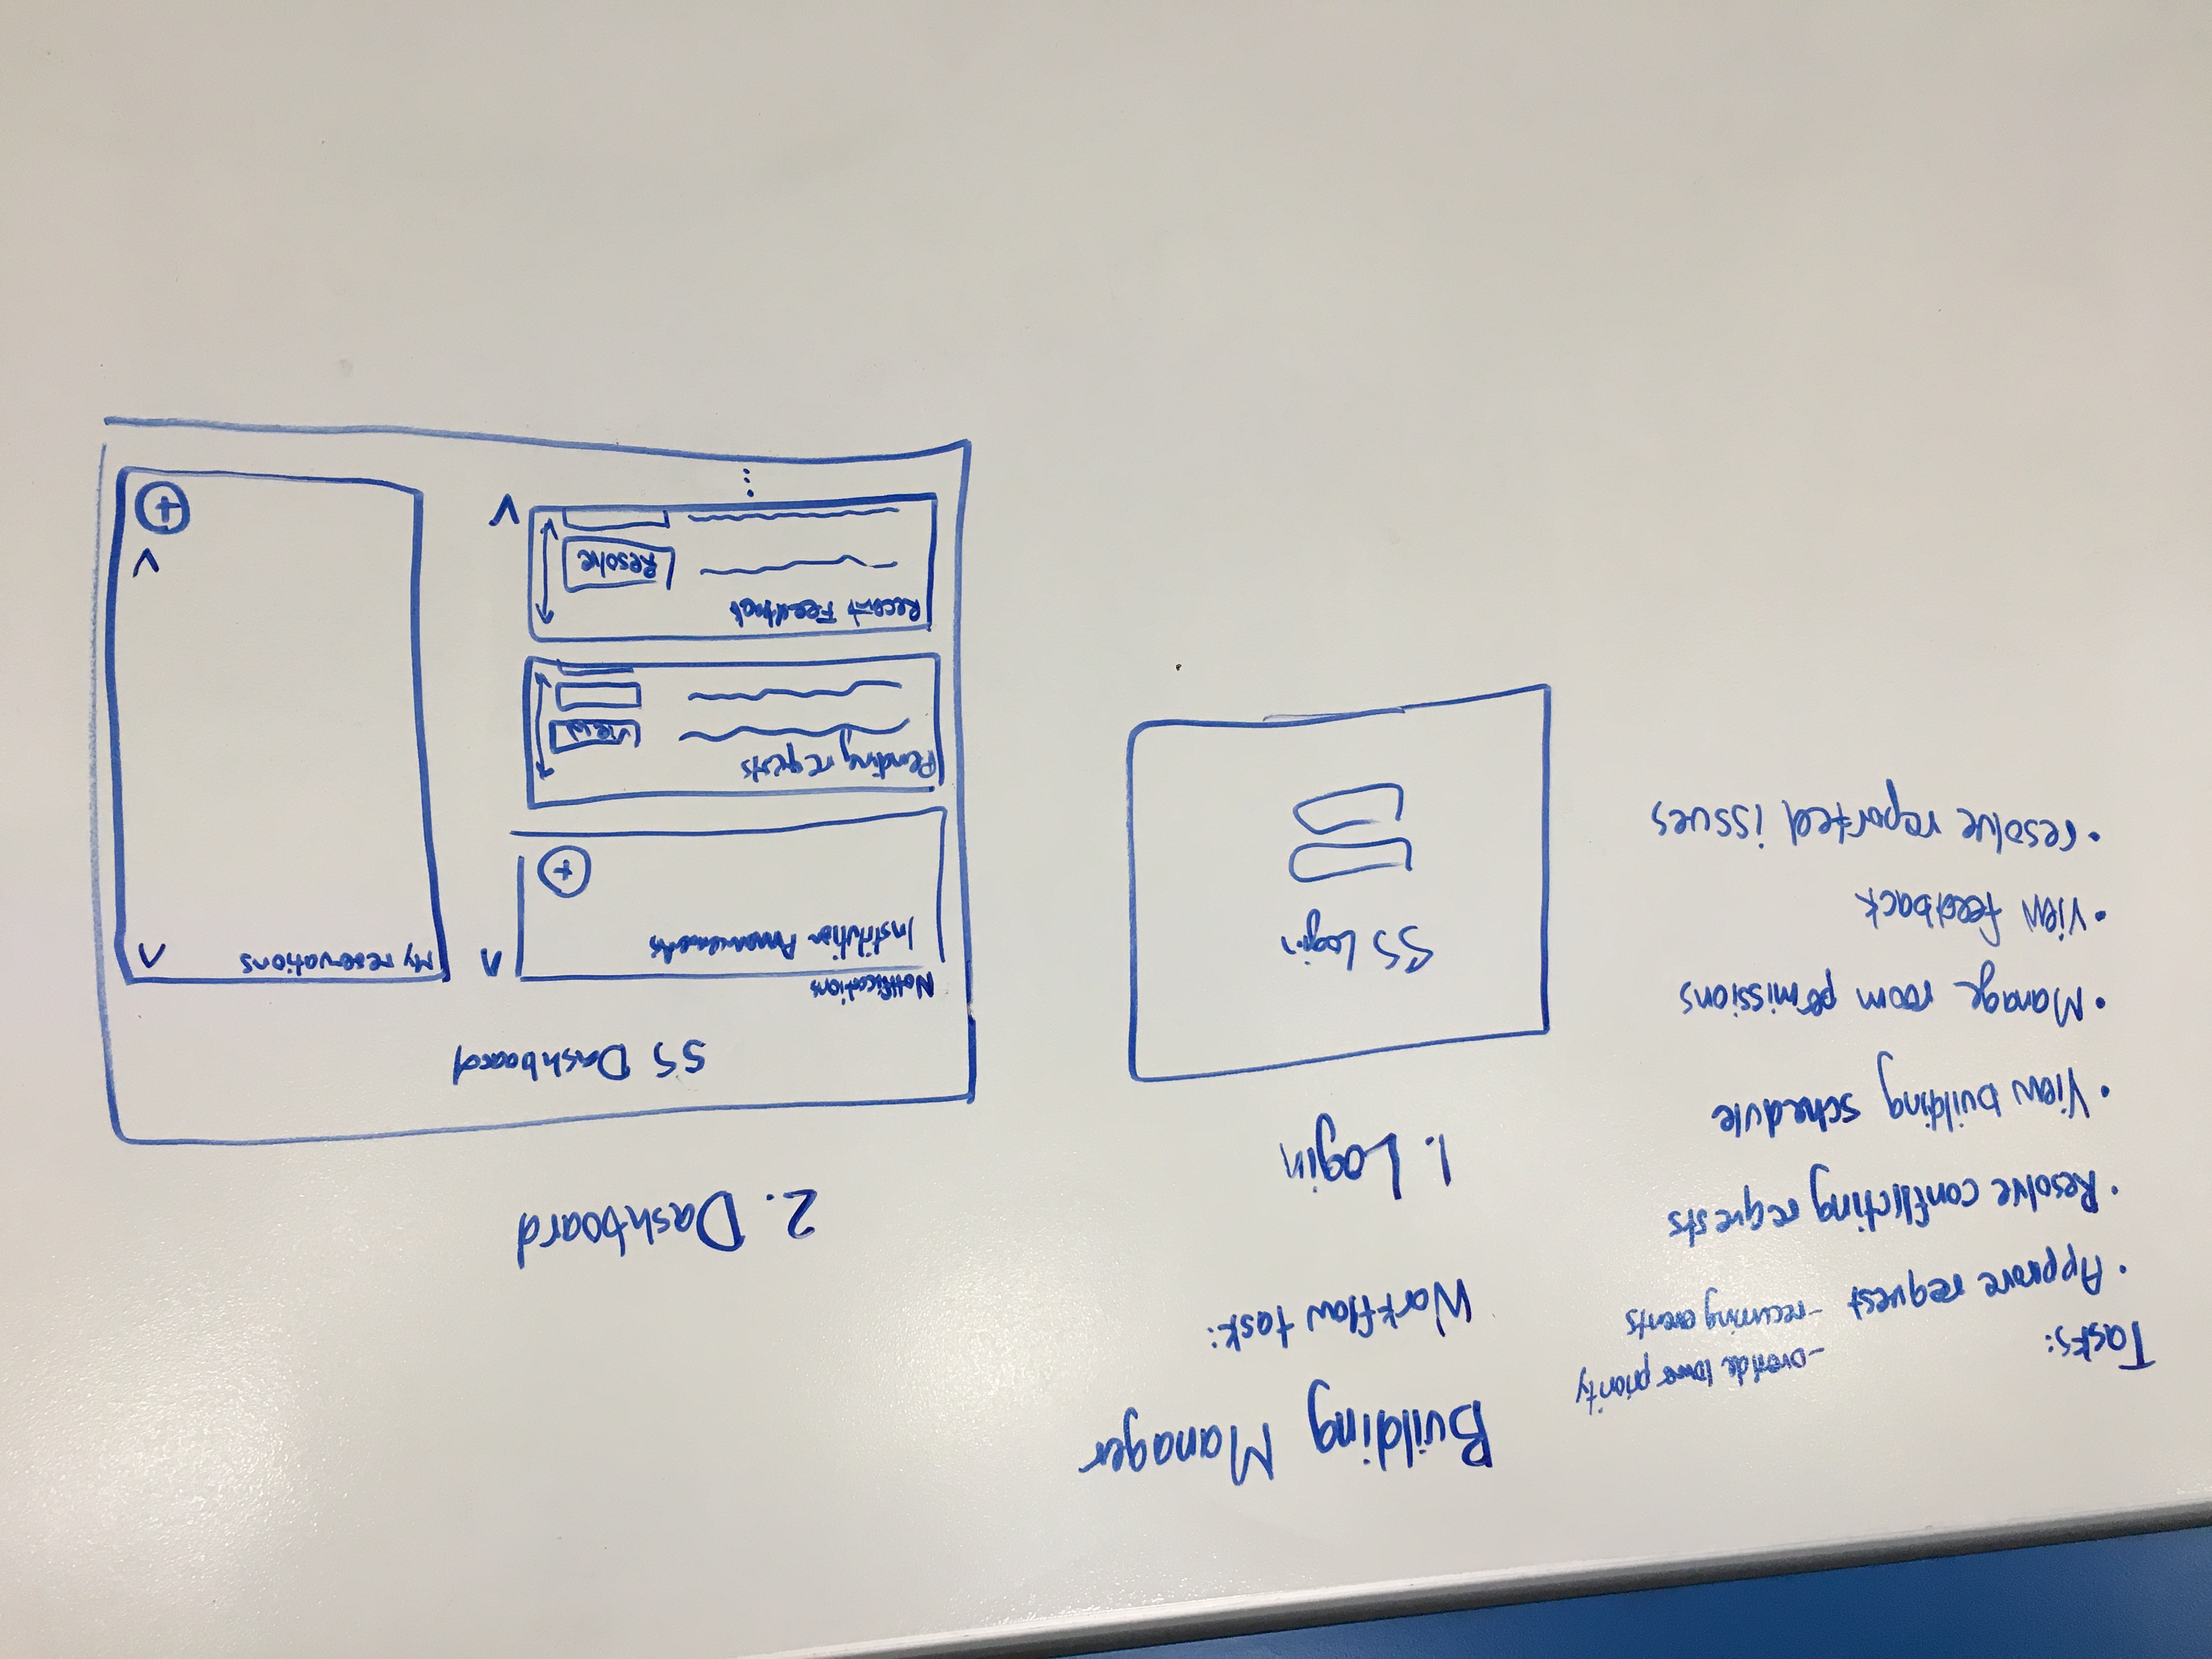 Building Manager
Tasks:
-override lower priority
-recurring events
• Approve request
• Resolve conflicting requests
• View building schedule
• Manage room permissions
• View feedback
• resolve reported issues
Workflow task:
1. Login
SS Login
2. Dashboard
SS Dashboard
Notifications
Institution Announcements
+
Pending requests
View
Recent Feedback
Resolve
My reservations
+